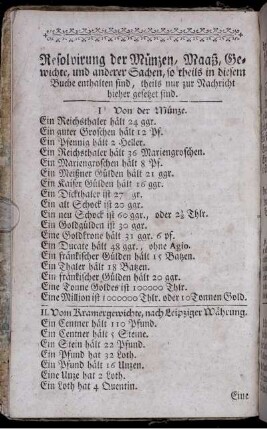 Resolvirung der Münzen, Maaß, Ge-
wichte, und anderer Sachen, so theils in diesem
Buche enthalten sind, theils nur zur Nachricht
hieher gesetzt sind.
I Von der Münze.
Ein Reichsthaler hält 24 ggr.
Ein guter Groschen hält 12 Pf.
Ein Pfennig hält 2 Heller.
Ein Reichsthaler hält 36 Mariengroschen.
Ein Mariengroschen hält 8 Pf.
Ein Meißner Gülden hält 21 ggr.
Ein Kaiser Gülden hält 16 ggr.
Ein Dickthaler ist 27 gr.
Ein alt Schock ist 20 ggr.
Ein neu Schock ist 60 ggr., oder 2½ Thlr.
Ein Goldgülden ist 30 ggr.
Eine Goldkrone hält 31 ggr. 6 pf.
Ein Ducate hält 48 ggr., ohne Agio.
Ein fränkischer Gülden hält 15 Batzen.
Ein Thaler hält 18 Batzen.
Ein fränkischer Gülden hält 20 ggr.
Eine Tonne Goldes ist 100000 Thlr.
Eine Million ist 1000000 Thlr. oder 10 Tonnen Gold.
II. Vom Kramergewichte, nach Leipziger Währung.
Ein Centner hält 110 Pfund.
Ein Centner hält 5 Steine.
Ein Stein hält 22 Pfund.
Ein Pfund hat 32 Loth.
Ein Pfund hält 16 Unzen.
Eine Unze hat 2 Loth.
Ein Loth hat 4 Quentin.
Eine